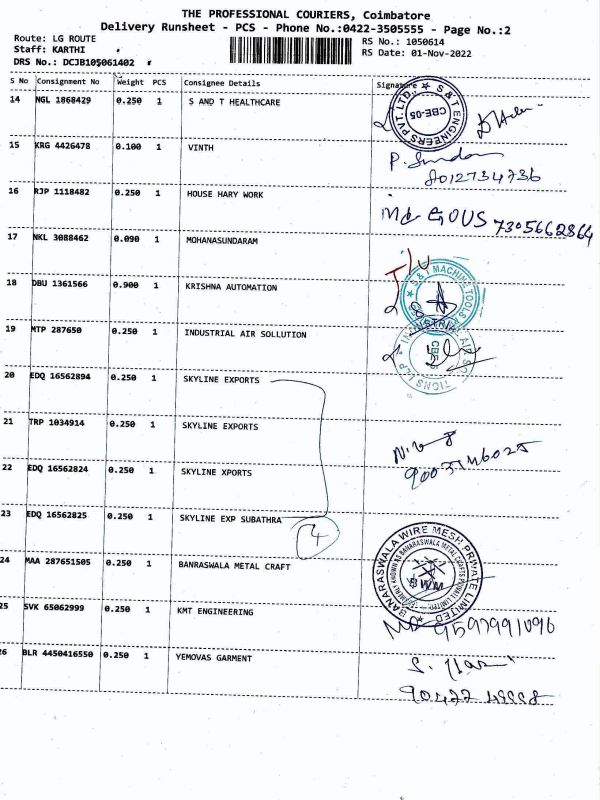 THE PROFESSIONAL COURIERS, Coimbatore
Delivery Runsheet - PCS - Phone No.:0422-3505555 - Page No.:2
Route: LG ROUTE
Staff: KARTHI
DRS No.: DCJB105061402
RS No.: 1050614
RS Date: 01-Nov-2022
S No Consignment No Weight PCS Consignee Details Signature
14 NGL 1868429 0.250 1 S AND T HEALTHCARE
S & T ENGINEERS PVT. LTD.,
CBE-05
15 KRG 4426478 0.100 1 VINTH
P. Sundar
8012734736
16 RJP 1118482 0.250 1 HOUSE HARY WORK
Md GOUS 7305662864
17 NKL 3088462 0.090 1 MOHANASUNDARAM
18 DBU 1361566 0.900 1 KRISHNA AUTOMATION
S & T MACHINE TOOLS
19 MTP 287650 0.250 1 INDUSTRIAL AIR SOLLUTION
INDUSTRIAL AIR
20 EDQ 16562894 0.250 1 SKYLINE EXPORTS
21 TRP 1034914 0.250 1 SKYLINE EXPORTS
22 EDQ 16562824 0.250 1 SKYLINE XPORTS
23 EDQ 16562825 0.250 1 SKYLINE EXP SUBATHRA
4
24 MAA 287651505 0.250 1 BANRASWALA METAL CRAFT
BANARASWALA WIRE MESH PRIVATE LIMITED
BWM
25 SVK 65062999 0.250 1 KMT ENGINEERING
26 BLR 4450416550 0.250 1 YEMOVAS GARMENT